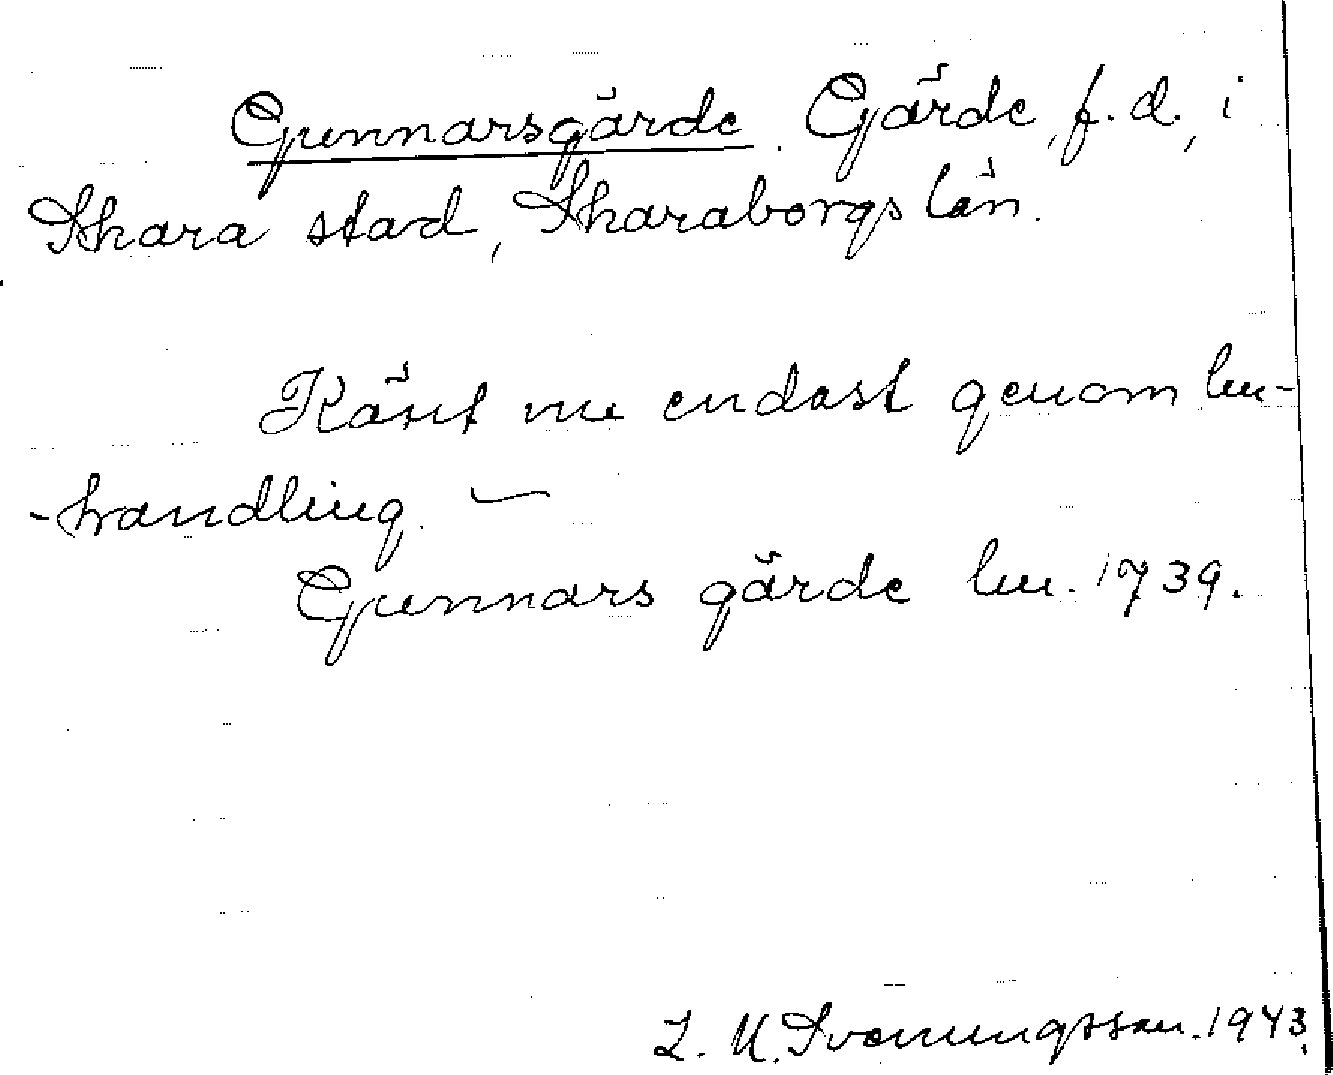 Gunnarsgärde. Gärde, f.d., i
Skara stad, Skaraborgs län.
Känt nu endast genom lm-
-handling. —
Gunnars gärde lm. 1739.
Z. M. Svenungsson. 1943.